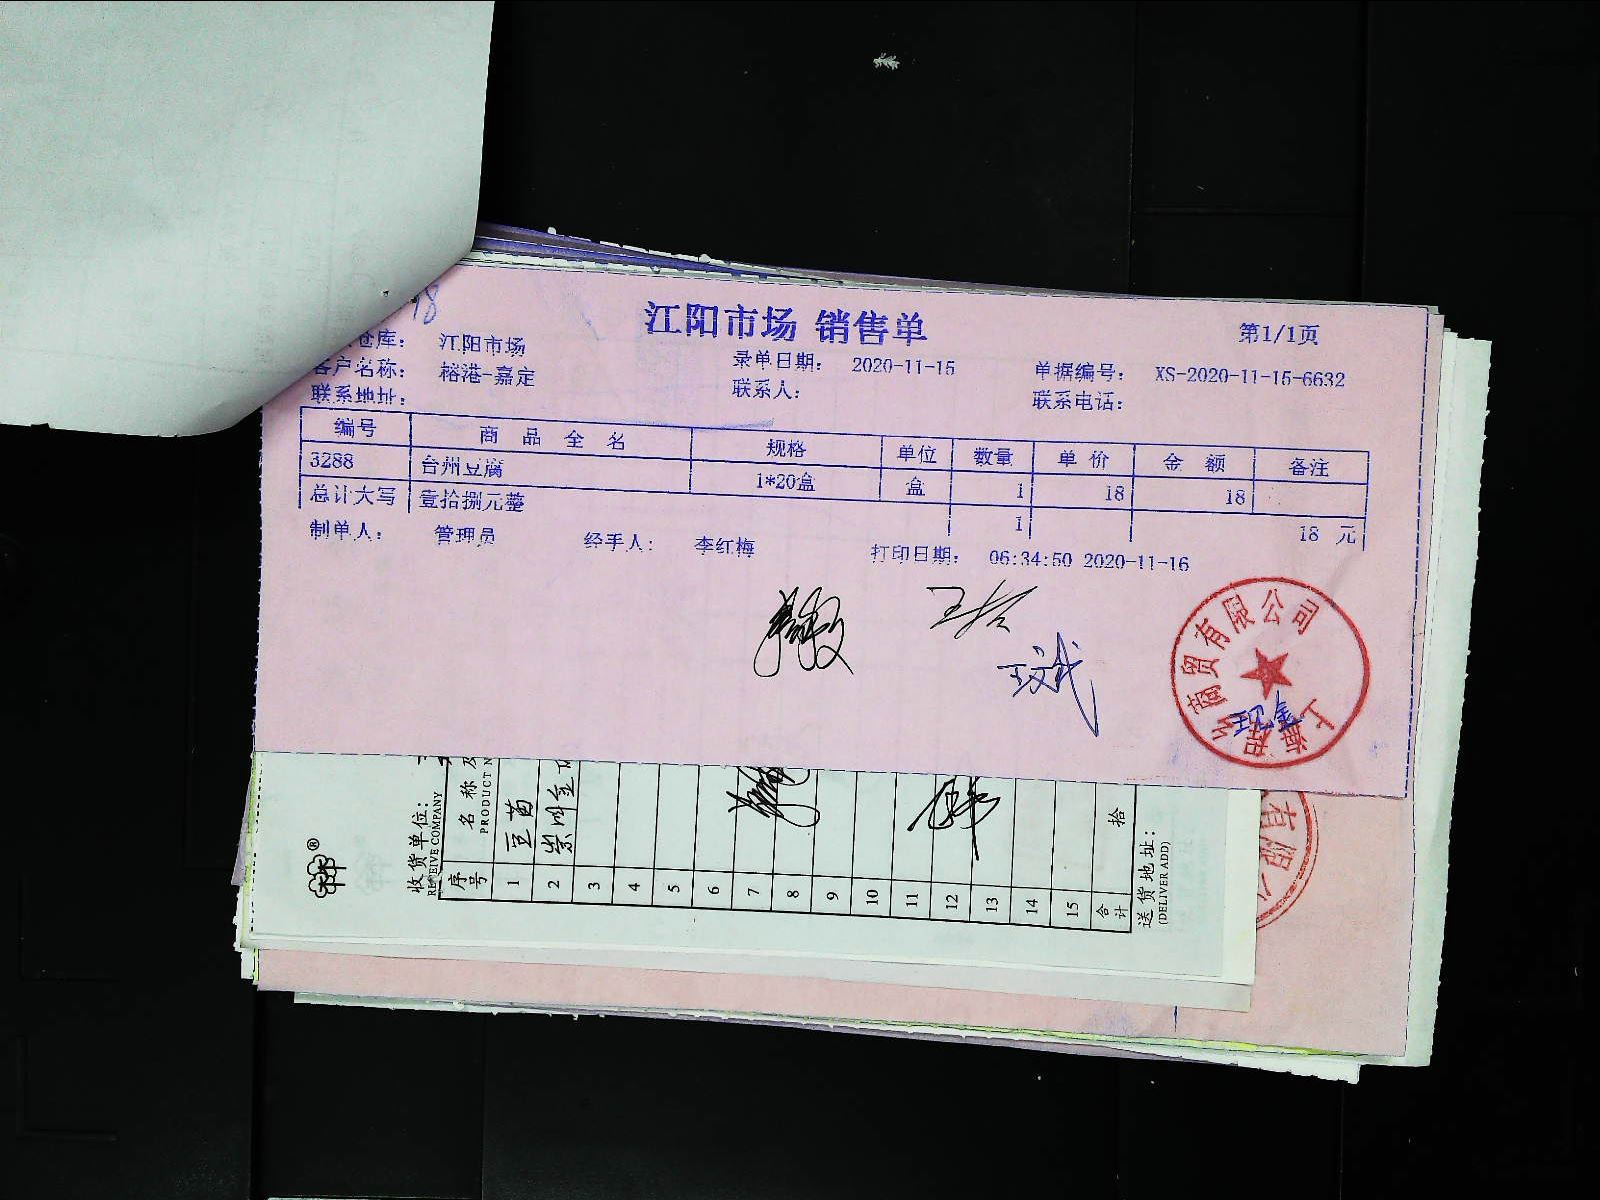 18
江阳市场 销售单
第1/1页
仓库： 江阳市场
客户名称： 榕港-嘉定
录单日期： 2020-11-15
单据编号： XS-2020-11-15-6632
联系地址：
联系人：
联系电话：
编号 商品全名 规格 单位 数量 单价 金额 备注
3288 台州豆腐 1*20盒 盒 1 18 18
总计大写 壹拾捌元整 1 18 元
制单人： 管理员 经手人： 李红梅 打印日期： 06:34:50 2020-11-16
上海 商贸有限公司
现金
收货单位：
RECEIVE COMPANY
序号 名称及
PRODUCT N
1 豆苗
2
3
4
5
6
7
8
9
10
11
12
13
14
15
合计 拾
送货地址：
(DELIVER ADD)
有限公